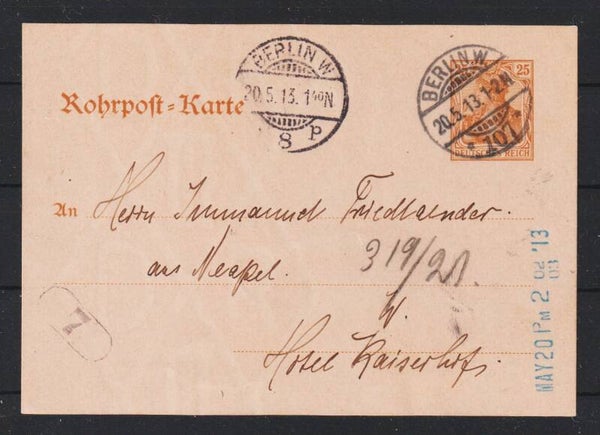 BERLIN W
20.5.13.1⁴⁰N
8 P
BERLIN.W.
20.5.13.1-2N
* 101 *
25
DEUTSCHES REICH
Rohrpost-Karte
An Herrn Immanuel Friedlaender.
aus Neapel.
319/21.
W.
Hotel Kaiserhof.
7
MAY 20 PM 2 '13